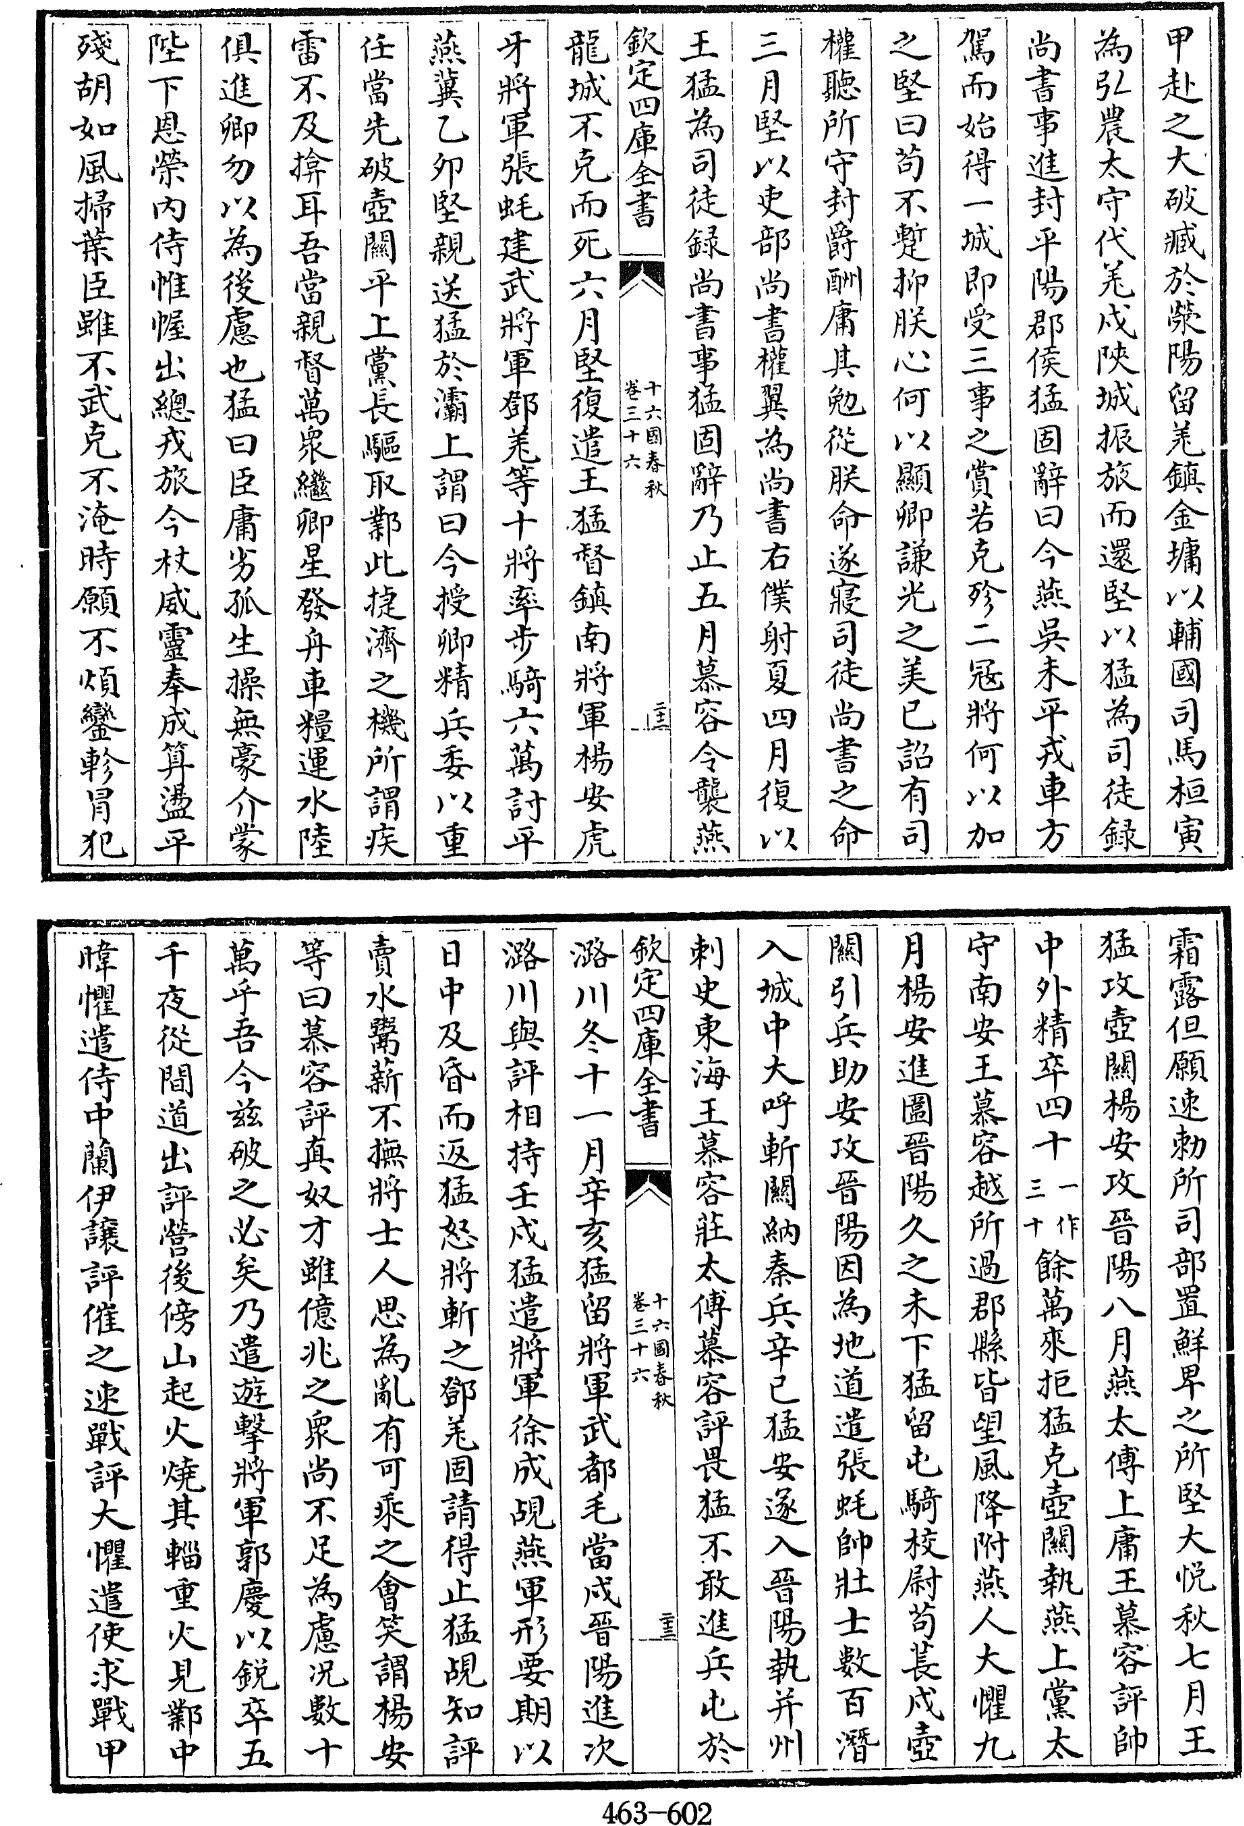 甲赴之大破臧於滎陽留羌鎮金墉以輔國司馬桓寅
為弘農太守代羌戍陜城振旅而還堅以猛為司徒録
尚書事進封平陽郡侯猛固辭曰今燕吳未平戎車方
駕而始得一城即受三事之賞若克殄二冦將何以加
之堅曰苟不蹔抑朕心何以顯卿謙光之美已詔有司
權聽所守封爵酬庸其勉從朕命遂寢司徒尚書之命
三月堅以吏部尚書權翼為尚書右僕射夏四月復以
王猛為司徒録尚書事猛固辭乃止五月慕容令襲燕
欽定四庫全書
十六國春秋
卷三十六
二十二
龍城不克而死六月堅復遣王猛督鎮南將軍楊安虎
牙將軍張蚝建武將軍鄧羌等十將率步騎六萬討平
燕冀乙卯堅親送猛於灞上謂曰今授卿精兵委以重
任當先破壺關平上黨長驅取鄴此捷濟之機所謂疾
雷不及揜耳吾當親督萬衆繼卿星發舟車糧運水陸
俱進卿勿以為後慮也猛曰臣庸劣孤生操無豪介蒙
陛下恩榮内侍帷幄出總戎旅今杖威靈奉成算盪平
殘胡如風掃葉臣雖不武克不淹時願不煩鑾軫冒犯
霜露但願速勅所司部置鮮卑之所堅大悦秋七月王
猛攻壺關楊安攻晉陽八月燕太傅上庸王慕容評帥
中外精卒四十一作三十餘萬來拒猛克壺關執燕上黨太
守南安王慕容越所過郡縣皆望風降附燕人大懼九
月楊安進圖晉陽久之未下猛留屯騎校尉苟萇戍壺
關引兵助安攻晉陽因為地道遣張蚝帥壯士數百潛
入城中大呼斬關納秦兵辛已猛安遂入晉陽執并州
刺史東海王慕容莊太傅慕容評畏猛不敢進兵屯於
欽定四庫全書
十六國春秋
卷三十六
二十三
潞川冬十一月辛亥猛留將軍武都毛當戍晉陽進次
潞川與評相持壬戍猛遣將軍徐成覘燕軍形要期以
日中及昏而返猛怒將斬之鄧羌固請得止猛覘知評
賣水鬻薪不撫將士人思為亂有可乘之會笑謂楊安
等曰慕容評真奴才雖億兆之衆尚不足為慮況數十
萬乎吾今兹破之必矣乃遣遊擊將軍郭慶以鋭卒五
千夜從間道出評營後傍山起火燒其輜重火見鄴中
暐懼遣侍中蘭伊讓評催之速戰評大懼遣使求戰甲
463-602